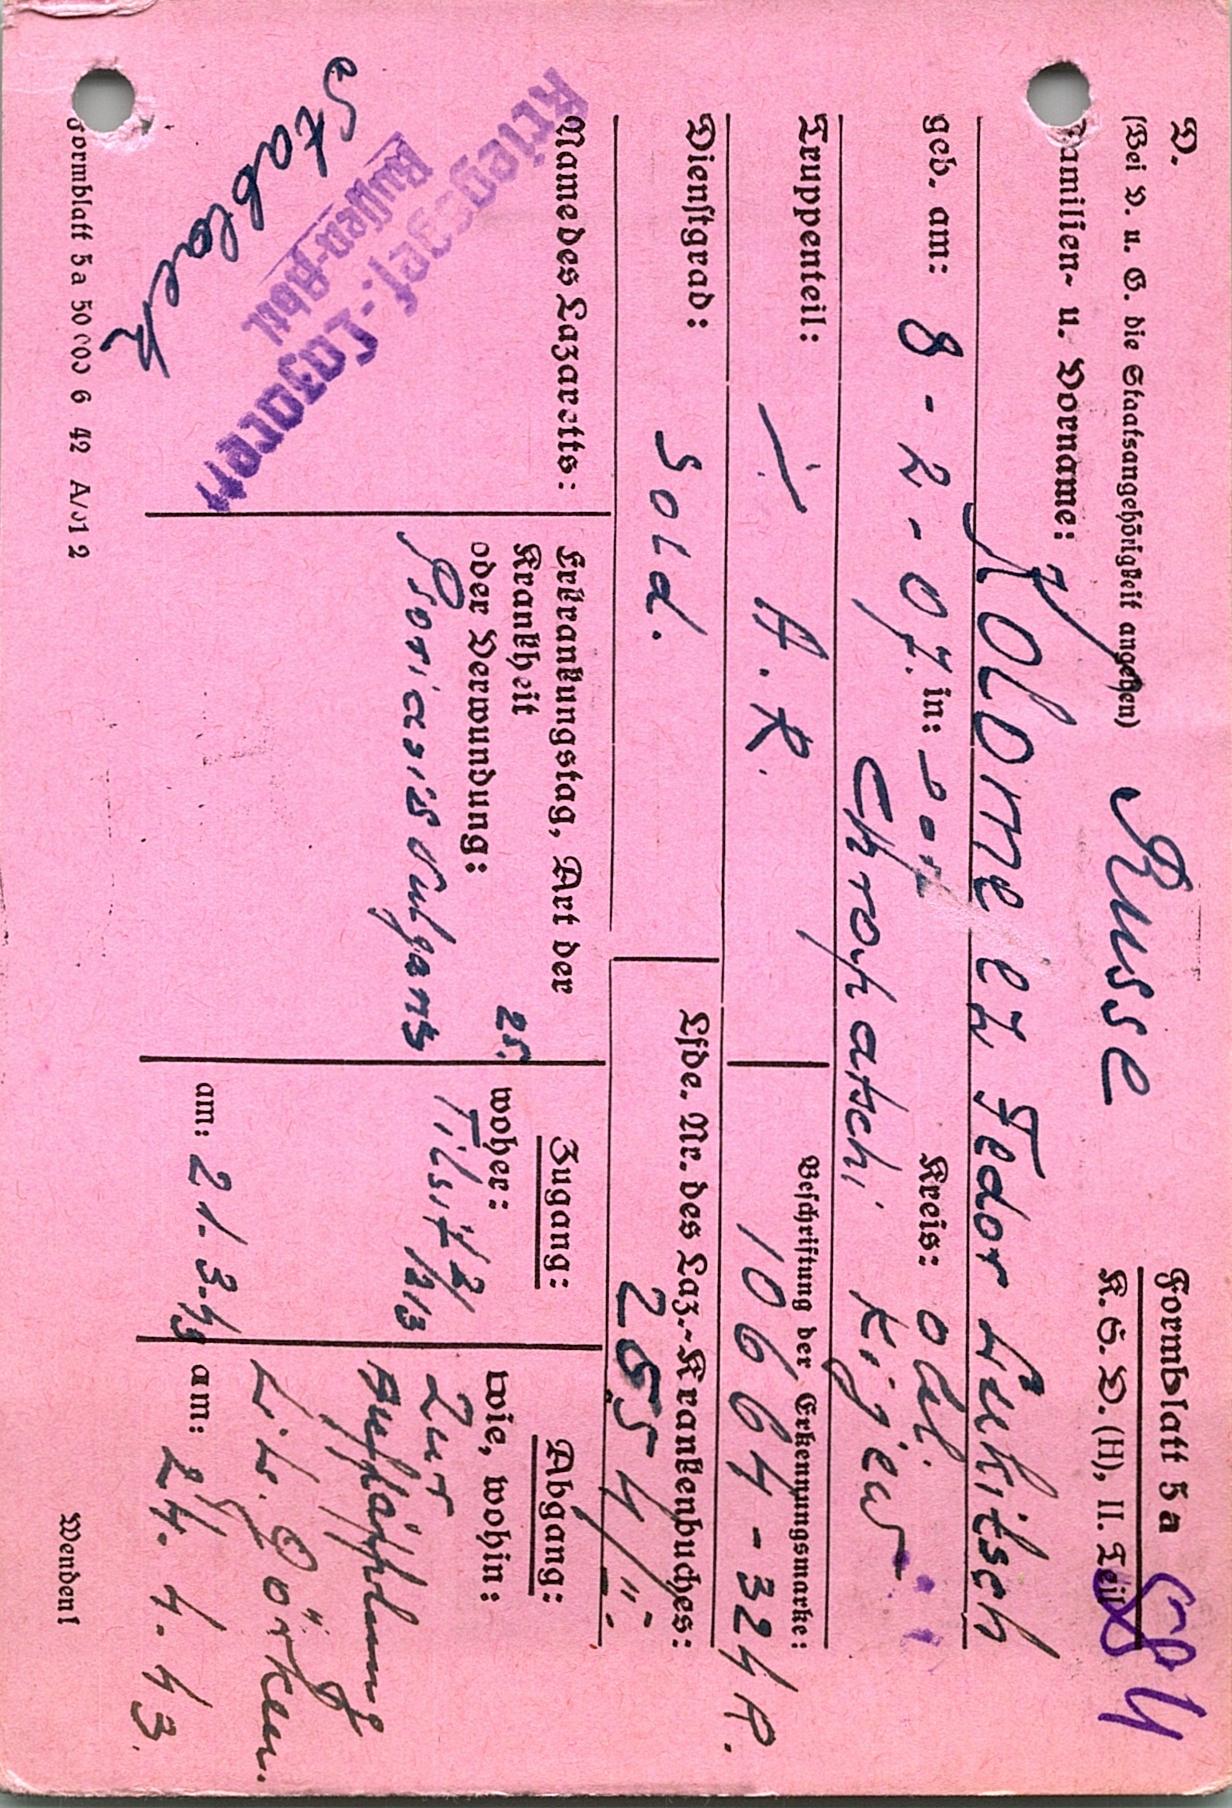 D.
Formblatt 5a
(Bei D. u. G. die Staatsangehörigkeit angeben)
Russe
K. S. D. (H), II. Teil
Familien- u. Vorname:
Kolomeez Fedor Lukitsch
geb. am: 8-2-07. in: Dorf Kreis: Obl.
Chrop atschi Kijew
Truppenteil:
Beschriftung der Erkennungsmarke:
A. R.
10664-324 P.
Dienstgrad:
Lfde. Nr. des Laz.-Krankenbuches:
Sold.
Name des Lazaretts:
Kriegsgef.-Lazarett
Russen-Abtl
Stablack
Erkrankungstag, Art der
Krankheit
oder Verwundung:
25.
Psoriasis vulgaris
Zugang:
woher:
Tilsit
am: 21.3.43
Abgang:
wie, wohin:
Zur
Aufpäpplung
Görken.
am: 24. 4. 43.
Formblatt 5a 50 000 6 42 A/012
Wenden!